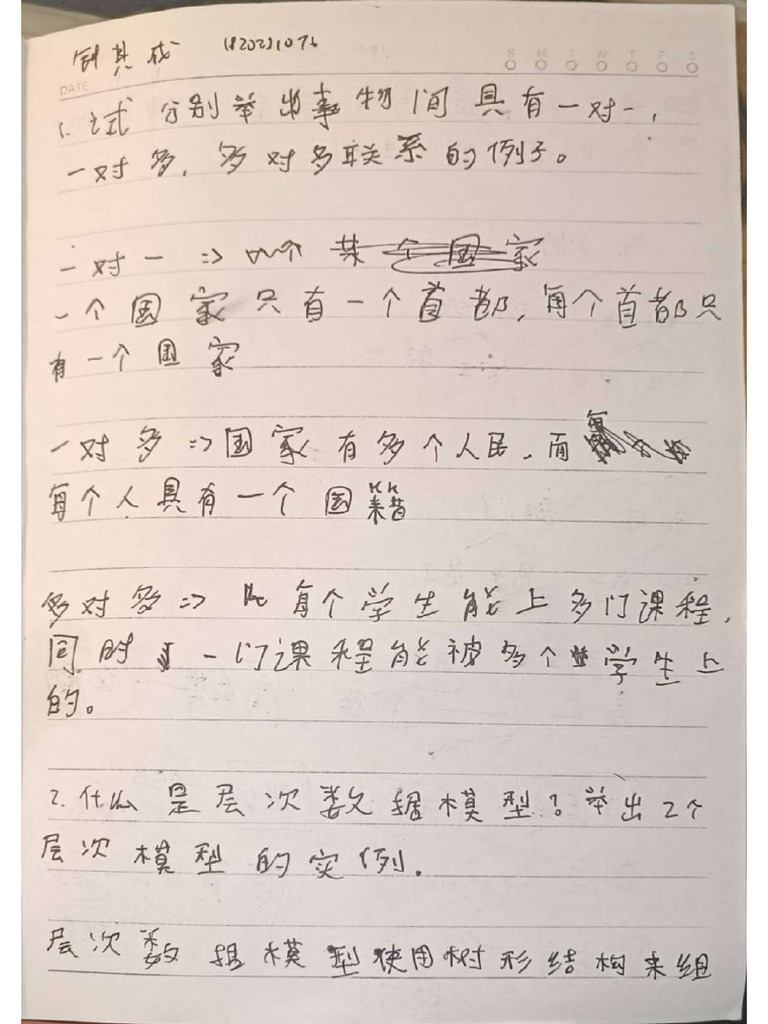 其成 1820231076
S M T W T F S
DATE
1. 试分别举出事物间具有一对一,
一对多,多对多联系的例子。
一对一 => 某个国家
一个国家只有一个首都,每个首都只
有一个国家
一对多 => 国家有多个人民,而
每个人具有一个国籍
多对多 => 每个学生能上多门课程,
同时 一门课程能被多个学生上
的。
2. 什么是层次数据模型?举出2个
层次模型的实例.
层次数据模型使用树形结构来组